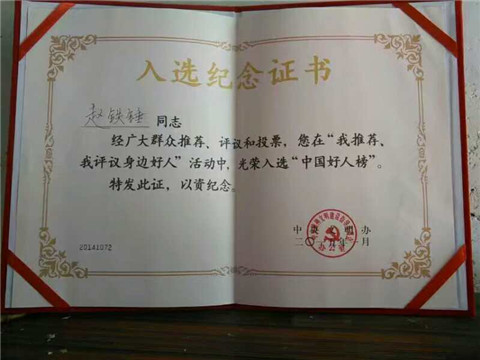 入选纪念证书
赵铁锤 同志
经广大群众推荐、评议和投票，您在“我推荐、
我评议身边好人”活动中，光荣入选“中国好人榜”。
特发此证，以资纪念。
中 办
二〇 年 一月
20141072